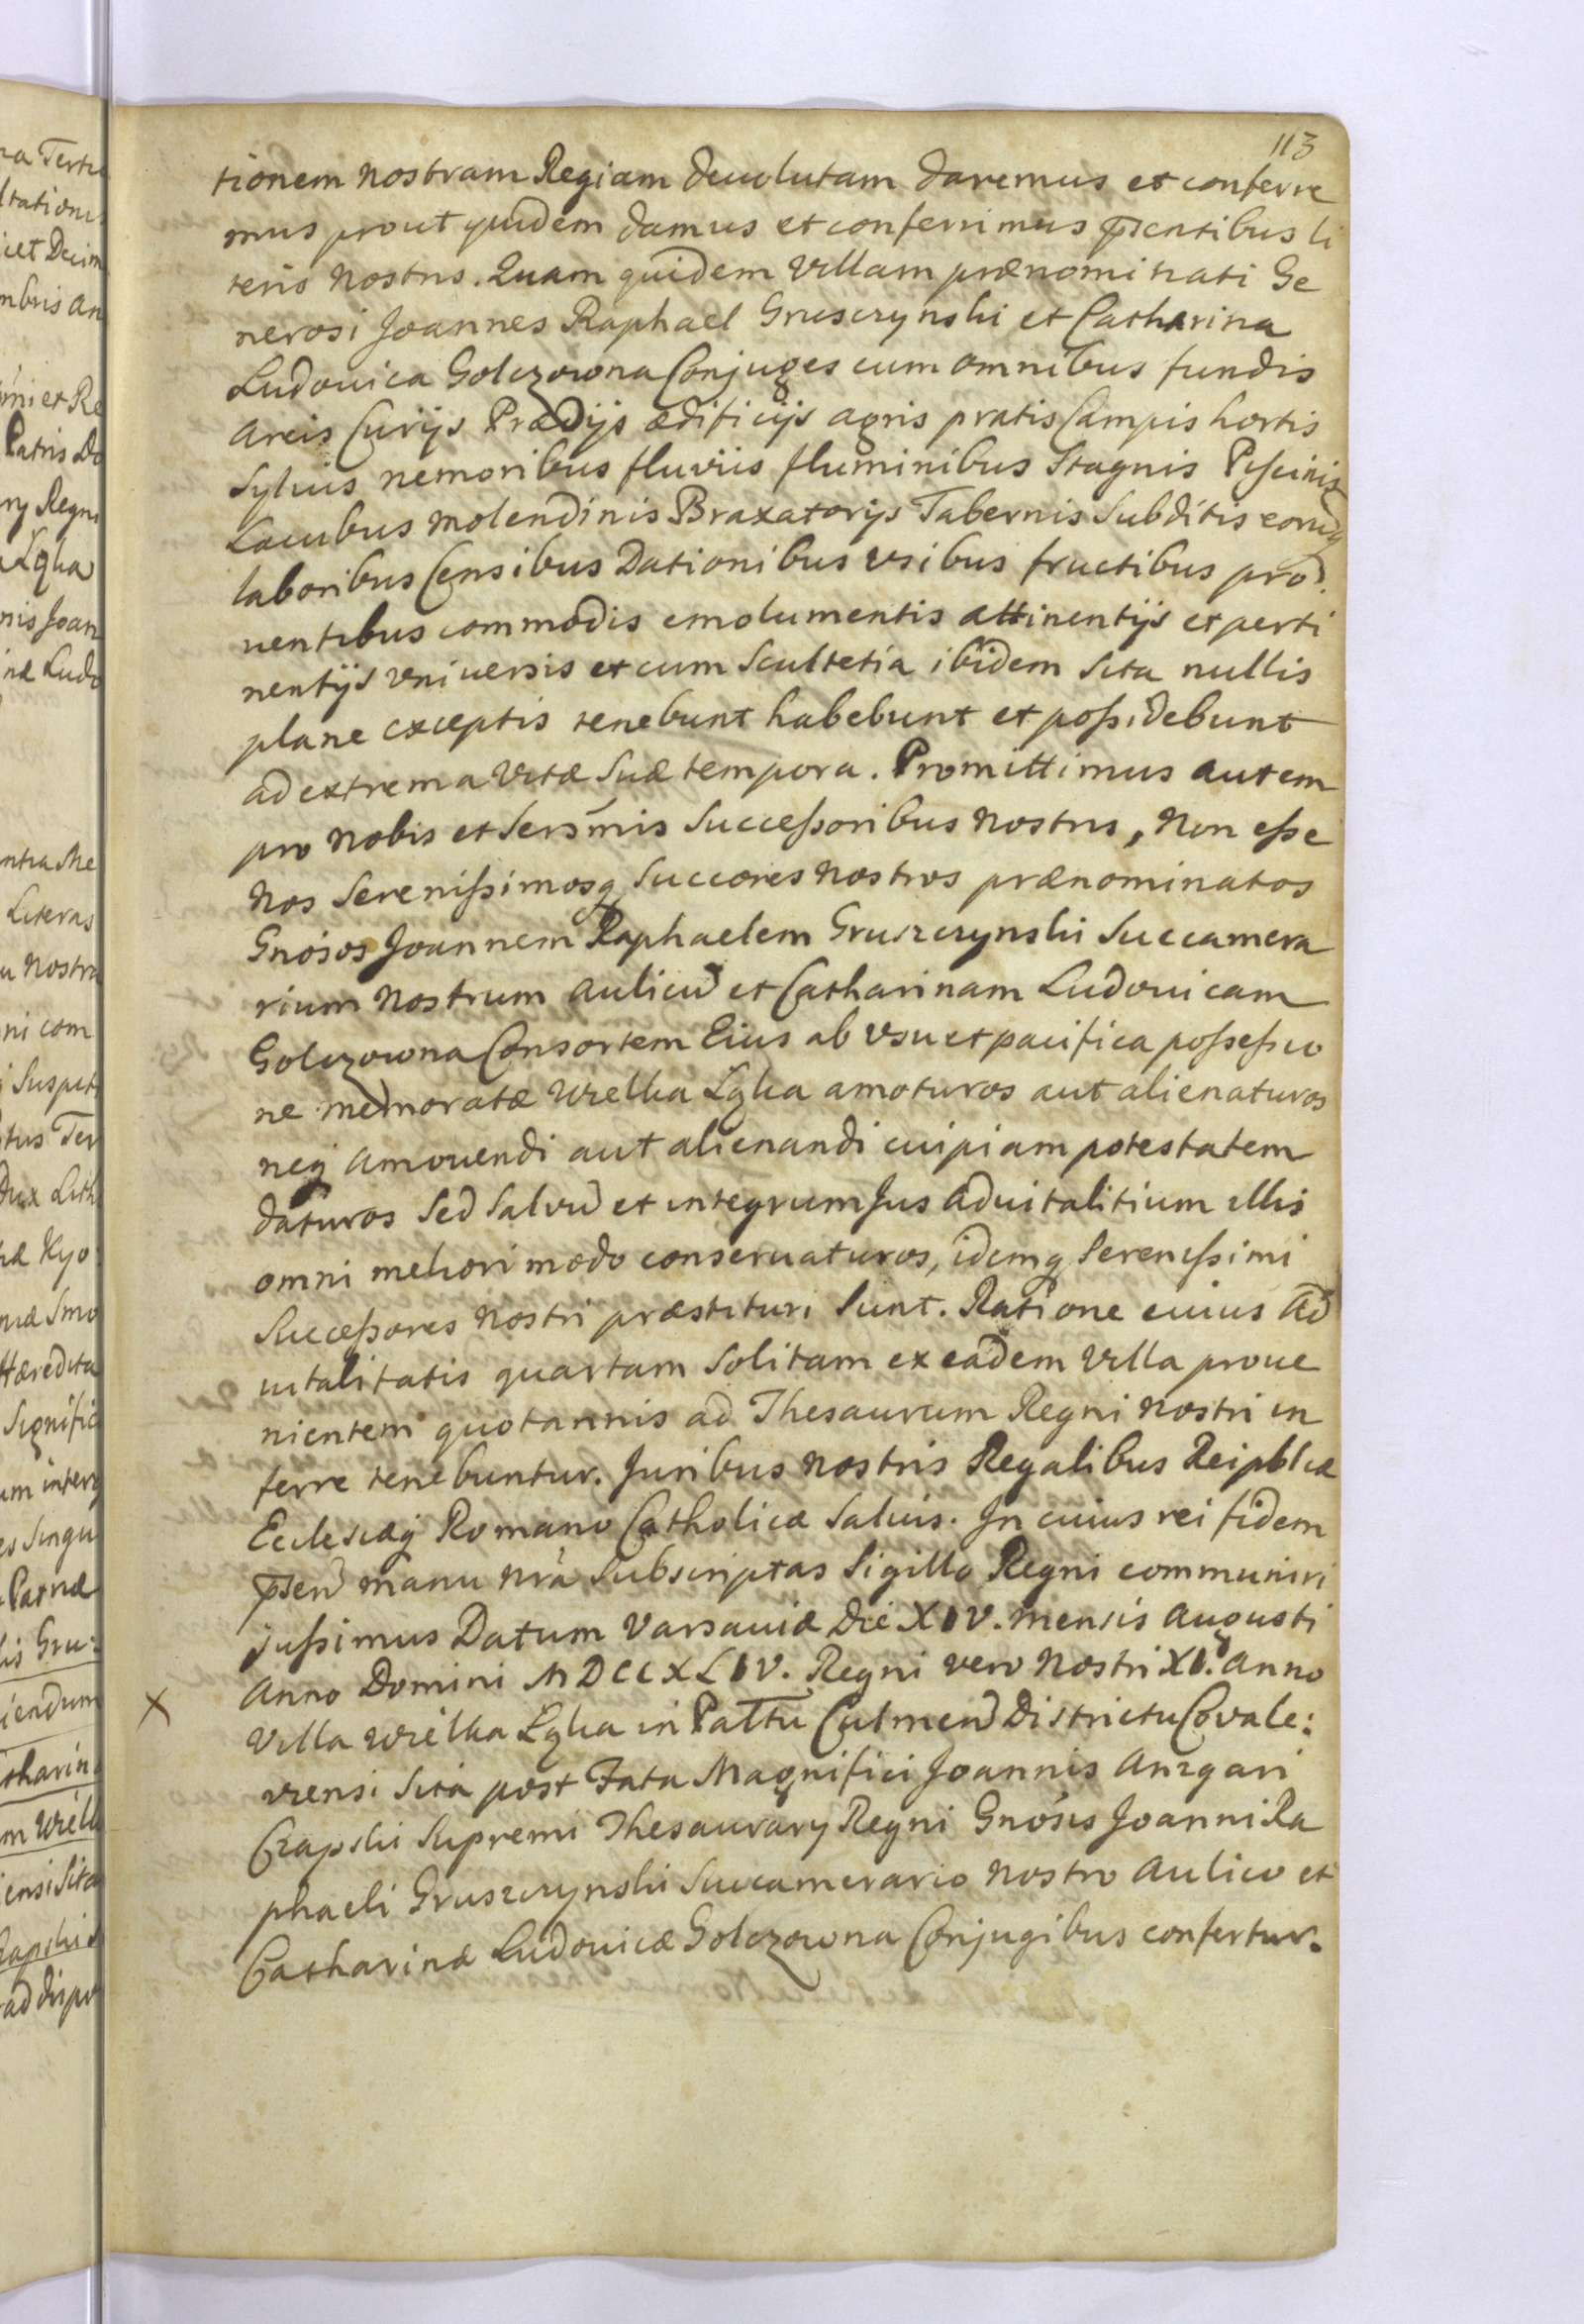 113
tionem nostram Regiam devolutam daremus et conferre
mus prout quidem damus et conferimus pɼentibus li
teris nostris. Quam quidem Villam prænominati Ge
nerosi Joannes Raphael Gruszczynski et Catharina
Ludovica Golczowna Conjuges cum omnibus fundis
areis Curijs Prædijs ædificijs agris pratis Campis hortis
Sylvis nemoribus fluviis fluminibus Stagnis Piscinis
Lacubus molendinis Braxatorijs Tabernis Subditis eorūq
laboribus Censibus Dationibus usibus fructibus pro
uentibus commodis emolumentis attinentijs et perti
nentijs universis et cum Scultetia ibidem sita nullis
plane exceptis tenebunt habebunt et possidebunt
ad extrema vitæ suæ tempora. Promittimus autem
pro nobis et Sersm̄is Successoribus nostris, non esse
nos Serenissimosq Succores nostros prænominatos
Gnosos Joannem Raphaelem Gruszczynski Succamera
rium nostrum aulicū et Catharinam Ludovicam
Golczowna Consortem Eius ab usu et pacifica possessio
ne memoratæ Wielka Łąka amoturos aut alienaturos
neq amovendi aut alienandi cuipiam potestatem
daturos sed salvū et integrum Jus aduitalitium illis
omni meliori modo conseruaturos, idemq Serenissimi
Successores nostri præstituri sunt. Ratione cuius ad
uitalitatis quartam solitam ex eadem Villa proue
nientem quotannis ad Thesaurum Regni nostri in
ferre tenebuntur. Juribus nostris Regalibus Reipblcæ
Ecclesiæq Romano Catholicæ salvis. In cuius rei fidem
pɼsen̄ manu nrā subscriptas Sigillo Regni communiri
jussimus Datum Varsaviæ Die XIV. mensis Augusti
Anno Domini MDCCXLIV. Regni vero nostri XI. anno
X
Villa Wielka Łąka in Pałtu Culmen̄ Districtu Covale:
viensi sita post Fata Magnifici Joannis Anzgari
Czapski Supremi Thesaurarij Regni Gnosis Joanni Ra
phaeli Gruszczynski Succamerario nostro Aulico et
Catharinæ Ludovicæ Golczowna Conjugibus confertur.